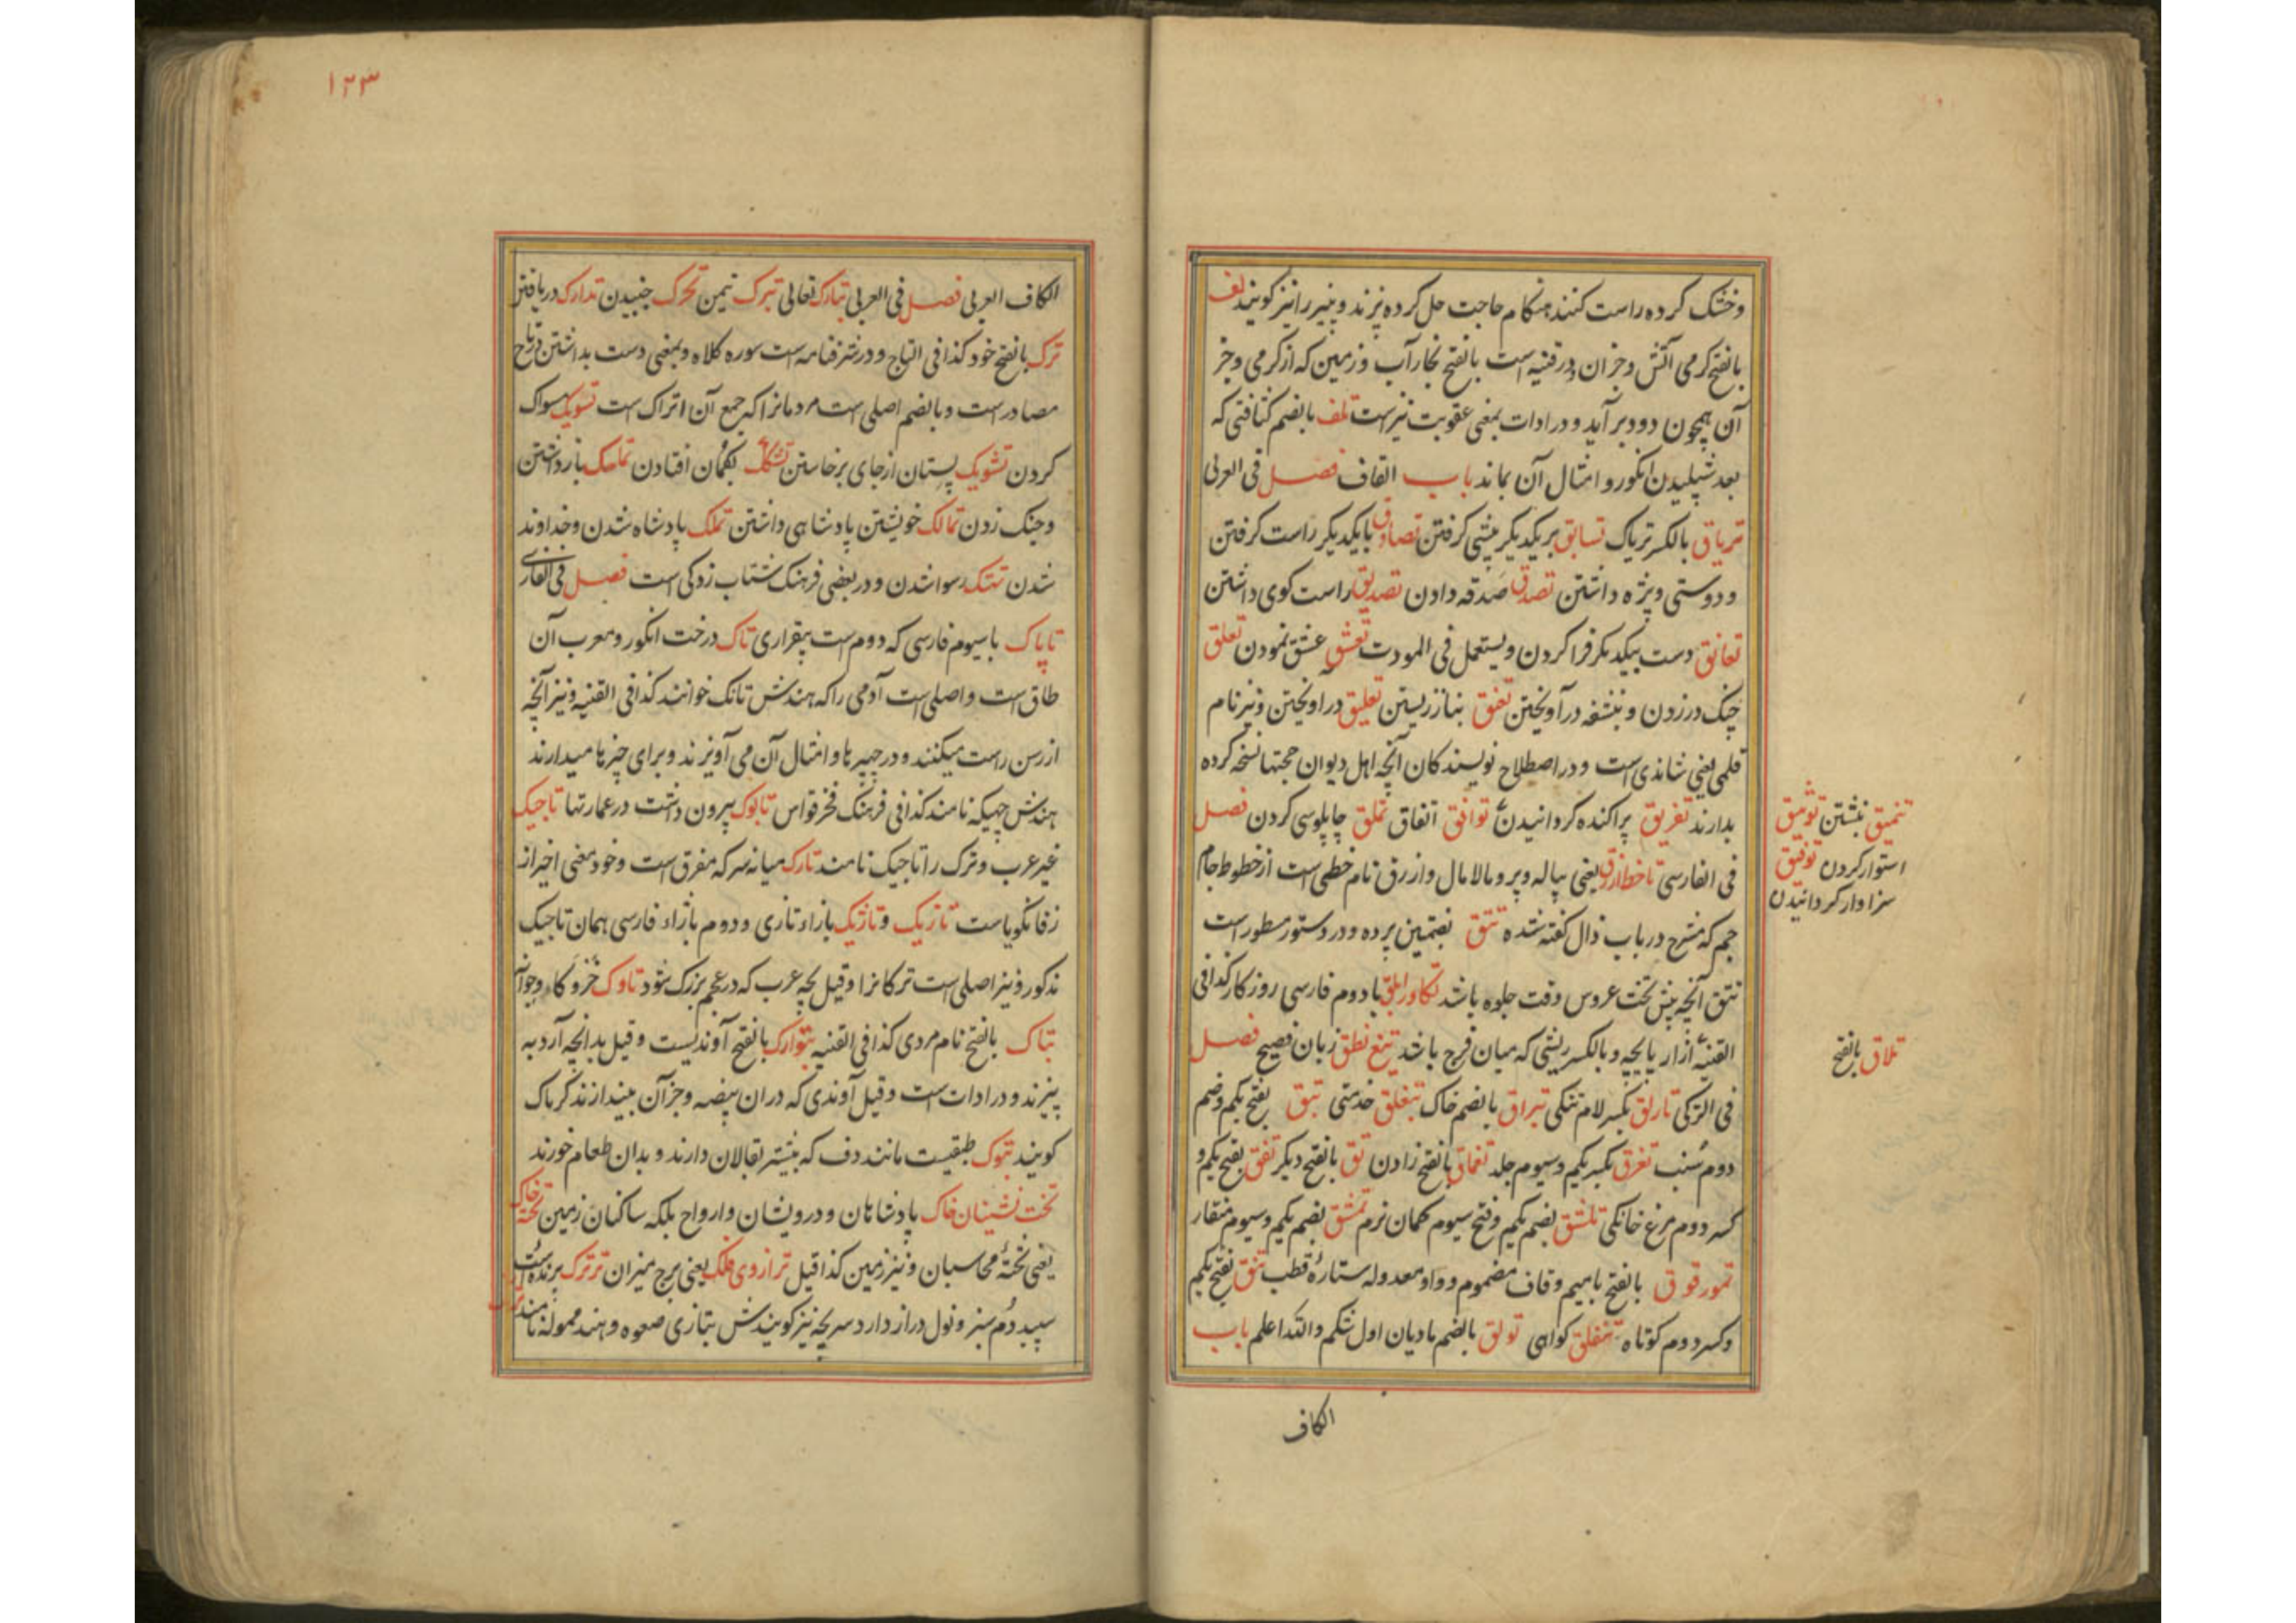 وخشک کرده راست کنند هنکام حاجت حل کرده پزند و پنیر را نیز کویند تف
بالفتح کرمی آتش وجز ان و در قنیه است بالفتح بخار آب وزمین که از کرمی وجز
آن همچون دود برآید و در ادات بمعنی عقوبت نیز است تلف بالضم کثافتی که
بعد شپلیدن انکور و امثال آن بماند باب القاف فصل فی العربی
تریاق بالکسر تریاک تسابق بر یکدیکر پیشی کرفتن تصادق با یکدیکر راست کرفتن
و دوستی ویژه داشتن تصدق صدقه دادن تصدیق راست کوی داشتن
تعانق دست بیکدیکر فرا کردن ویستعمل فی المودت تعشق عشق نمودن تعلق
چنک در زدن و بنشفه در آویختن تفنق بناز زیستن تعلیق در اویختن و نیز نام
قلمی یعنی شاندی است و در اصطلاح نویسندکان آنچه اهل دیوان حجتها نسخه کرده
بدارند تفریق پراکنده کردانیدن توافق اتفاق تملق چاپلوسی کردن فصل
فی الفارسی تا خط ازرق یعنی پیاله و پر و مالامال و ازرق نام خطی است از خطوط جام
جم که مشرح در باب ذال کفته شده تتق بضمتین پرده و در دستور مسطور است
تتق آنچه پیش تخت عروس وقت جلوه باشد تکاور ابلق با دوم فارسی روزکار کذا فی
القنیه ازار پایچه و بالکسر ریشی که میان فرج باشد تیغ نطق زبان فصیح فصل
فی الترکی تارلق بکسر لام تنکی تبراق بالضم خاک تبغلق خدمتی تبق بفتح یکم وضم
دوم سنب تغرق بکسر یکم وسیوم جلد تغماق بالفتح زادن تق بالفتح دیکر تفق بفتح یکم و
کسر دوم مرغ خانکی تلشق بضم یکم وفتح سیوم کمان نرم تمشق بضم یکم وسیوم منقار
تمور قوق بالفتح بامیم وقاف مضموم و واو معدوله ستارۀ قطب تنق بفتح یکم
وکسر دوم کوتاه تنقلق کواهی تولق بالضم مادیان اول شکم والله اعلم باب
تنمیق نبشتن توثیق
استوار کردن توفیق
سزاوار کردانیدن
تلاق بالفتح
الکاف
۱۲۳
الکاف العربی فصل فی العربی تبارک تعالی تبرک تیمن تحرک جنبیدن تدارک دریافتن
ترک بالفتح خود کذا فی التاج و در شرفنامه است سوره کلاه و بمعنی دست بداشتن در تاج
مصادر است و بالضم اصلی است مردمانرا که جمع آن اتراک است تسویک مسواک
کردن تشویک پستان از جای برخاستن تشکک بکمان افتادن تماسک باز داشتن
وچنک زدن تمالک خویشتن پادشاهی داشتن تملک پادشاه شدن وخداوند
شدن تهتک رسوا شدن و در بعضی فرهنک شتاب زدکی است فصل فی الفارسی
تاپاک با سیوم فارسی که دوم است بیقراری تاک درخت انکور و معرب آن
طاق است و اصلی است آدمی را که هندش تانک خوانند کذا فی القنیه و نیز آنچه
از رسن راست میکنند و در چپرها و امثال آن می آویزند و برای چیزها میدارند
هندش چهیکه نامند کذا فی فرهنک فخر قواس تابوک بیرون داشت در عمارتها تاجیک
غیر عرب و ترک را تاجیک نامند تارک میانه سر که مفرق است وخود معنی اخیر از
زفانکویاست تازیک و تاژیک بازاء تازی و دوم بازاء فارسی همان تاجیک
مذکور و نیز اصلی است ترکانرا وقیل بچه عرب که در عجم بزرک شود تاوک خر و کاو جوانه
تباک بالفتح نام مردی کذا فی القنیه تبوارک بالفتح آوندیست وقیل بدانچه آرد به
پیزند و در ادات است وقیل آوندی که دران بیضه وجز آن بیندازند کرماک
کویند تبوک طبقیست مانند دف که بیشتر بقالان دارند و بدان طعام خورند
تخت نشینان خاک پادشاهان و درویشان و ارواح بلکه ساکنان زمین تخته خاک
یعنی تختۀ محاسبان و نیز زمین کذا قیل ترازوی فلک یعنی برج میزان ترترک پرنده است
سپید دم سبز و نول دراز دارد سریچه نیز کویندش بتازی صعوه و هند ممولا نامند